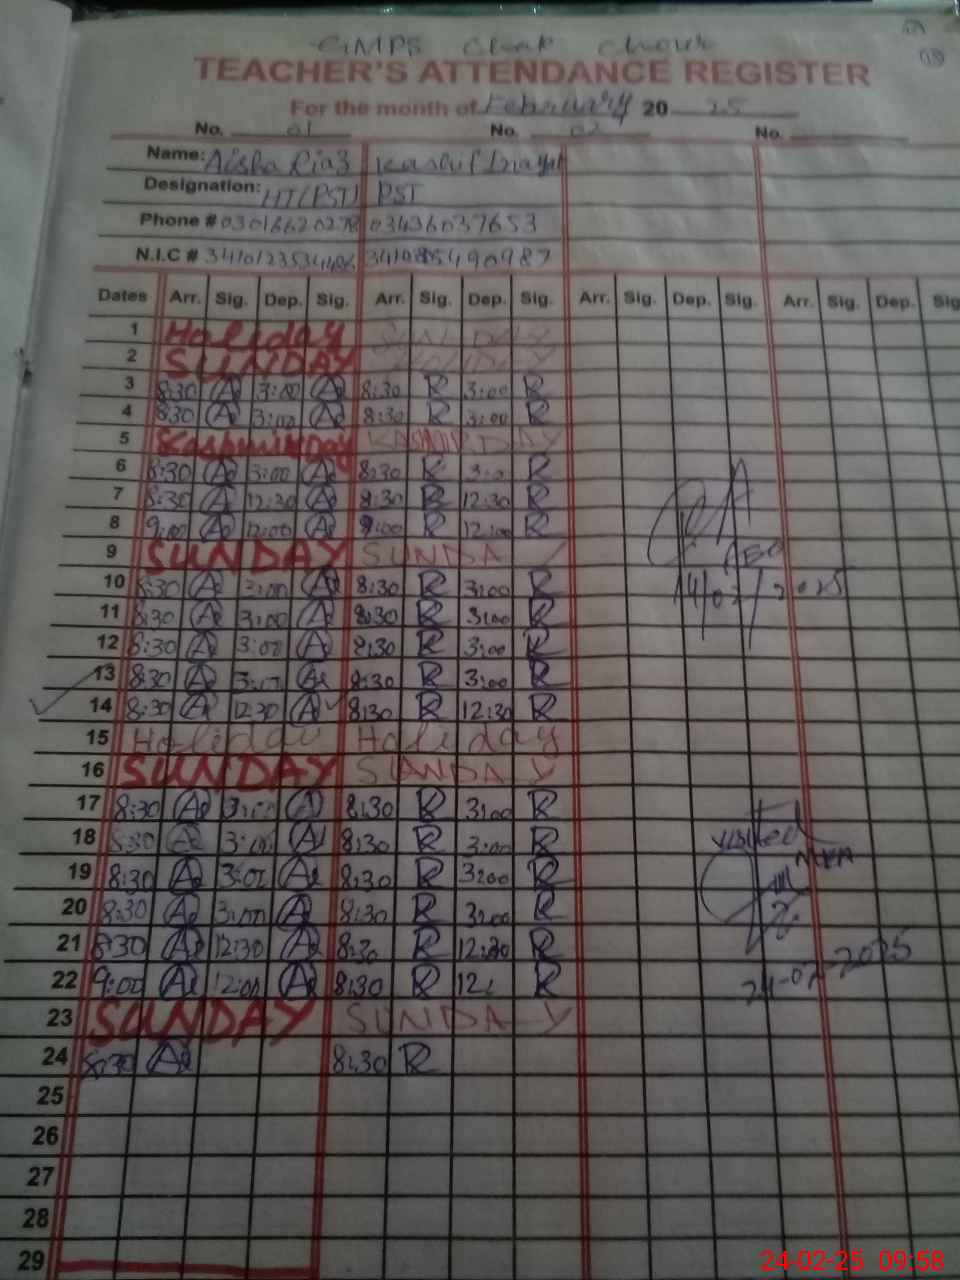 GMPS Chak
TEACHER'S ATTENDANCE REGISTER
For the month of February 20 25
No. 01 No. 02 No.
Name: Aisha Riaz Kashif Inayat
Designation: HT(PST) PST
Phone # 03016620278 03436037653
N.I.C #
Dates Arr. Sig. Dep. Sig. Arr. Sig. Dep. Sig. Arr. Sig. Dep. Sig. Arr. Sig. Dep. Sig
1 Holiday SUNDAY
2 SUNDAY
3 8:30 A 3:00 A 8:30 R 3:00 R
4 8:30 A 3:00 A 8:30 R 3:00 R
5 Kashmir day KASHMIR DAY
6 8:30 A 3:00 A 8:30 R 3:0 R
7 8:30 A 12:30 A 8:30 R 12:30 R
8 9:00 A 12:00 A 9:00 R 12:00 R
9 SUNDAY SUNDAY
AEO
10 8:30 A 3:00 A 8:30 R 3:00 R
14/02/2025
11 8:30 A 3:00 A 8:30 R 3:00 R
12 8:30 A 3:00 A 8:30 R 3:00 R
13 8:30 A 3:00 A 8:30 R 3:00 R
14 8:30 A 12:30 A 8:30 R 12:30 R
15 Holiday Holiday
16 SUNDAY SUNDAY
17 8:30 A 3:00 A 8:30 R 3:00 R
18 8:30 A 3:00 A 8:30 R 3:00 R
Visited
MEA
19 8:30 A 3:00 A 8:30 R 3:00 R
20 8:30 A 3:00 A 8:30 R 3:00 R
21 8:30 A 12:30 A 8:30 R 12:30 R
22 9:00 A 12:00 A 8:30 R 12: R
24-02-2025
23 SUNDAY SUNDAY
24 8:30 A 8:30 R
25
26
27
28
29
24-02-25 09:58